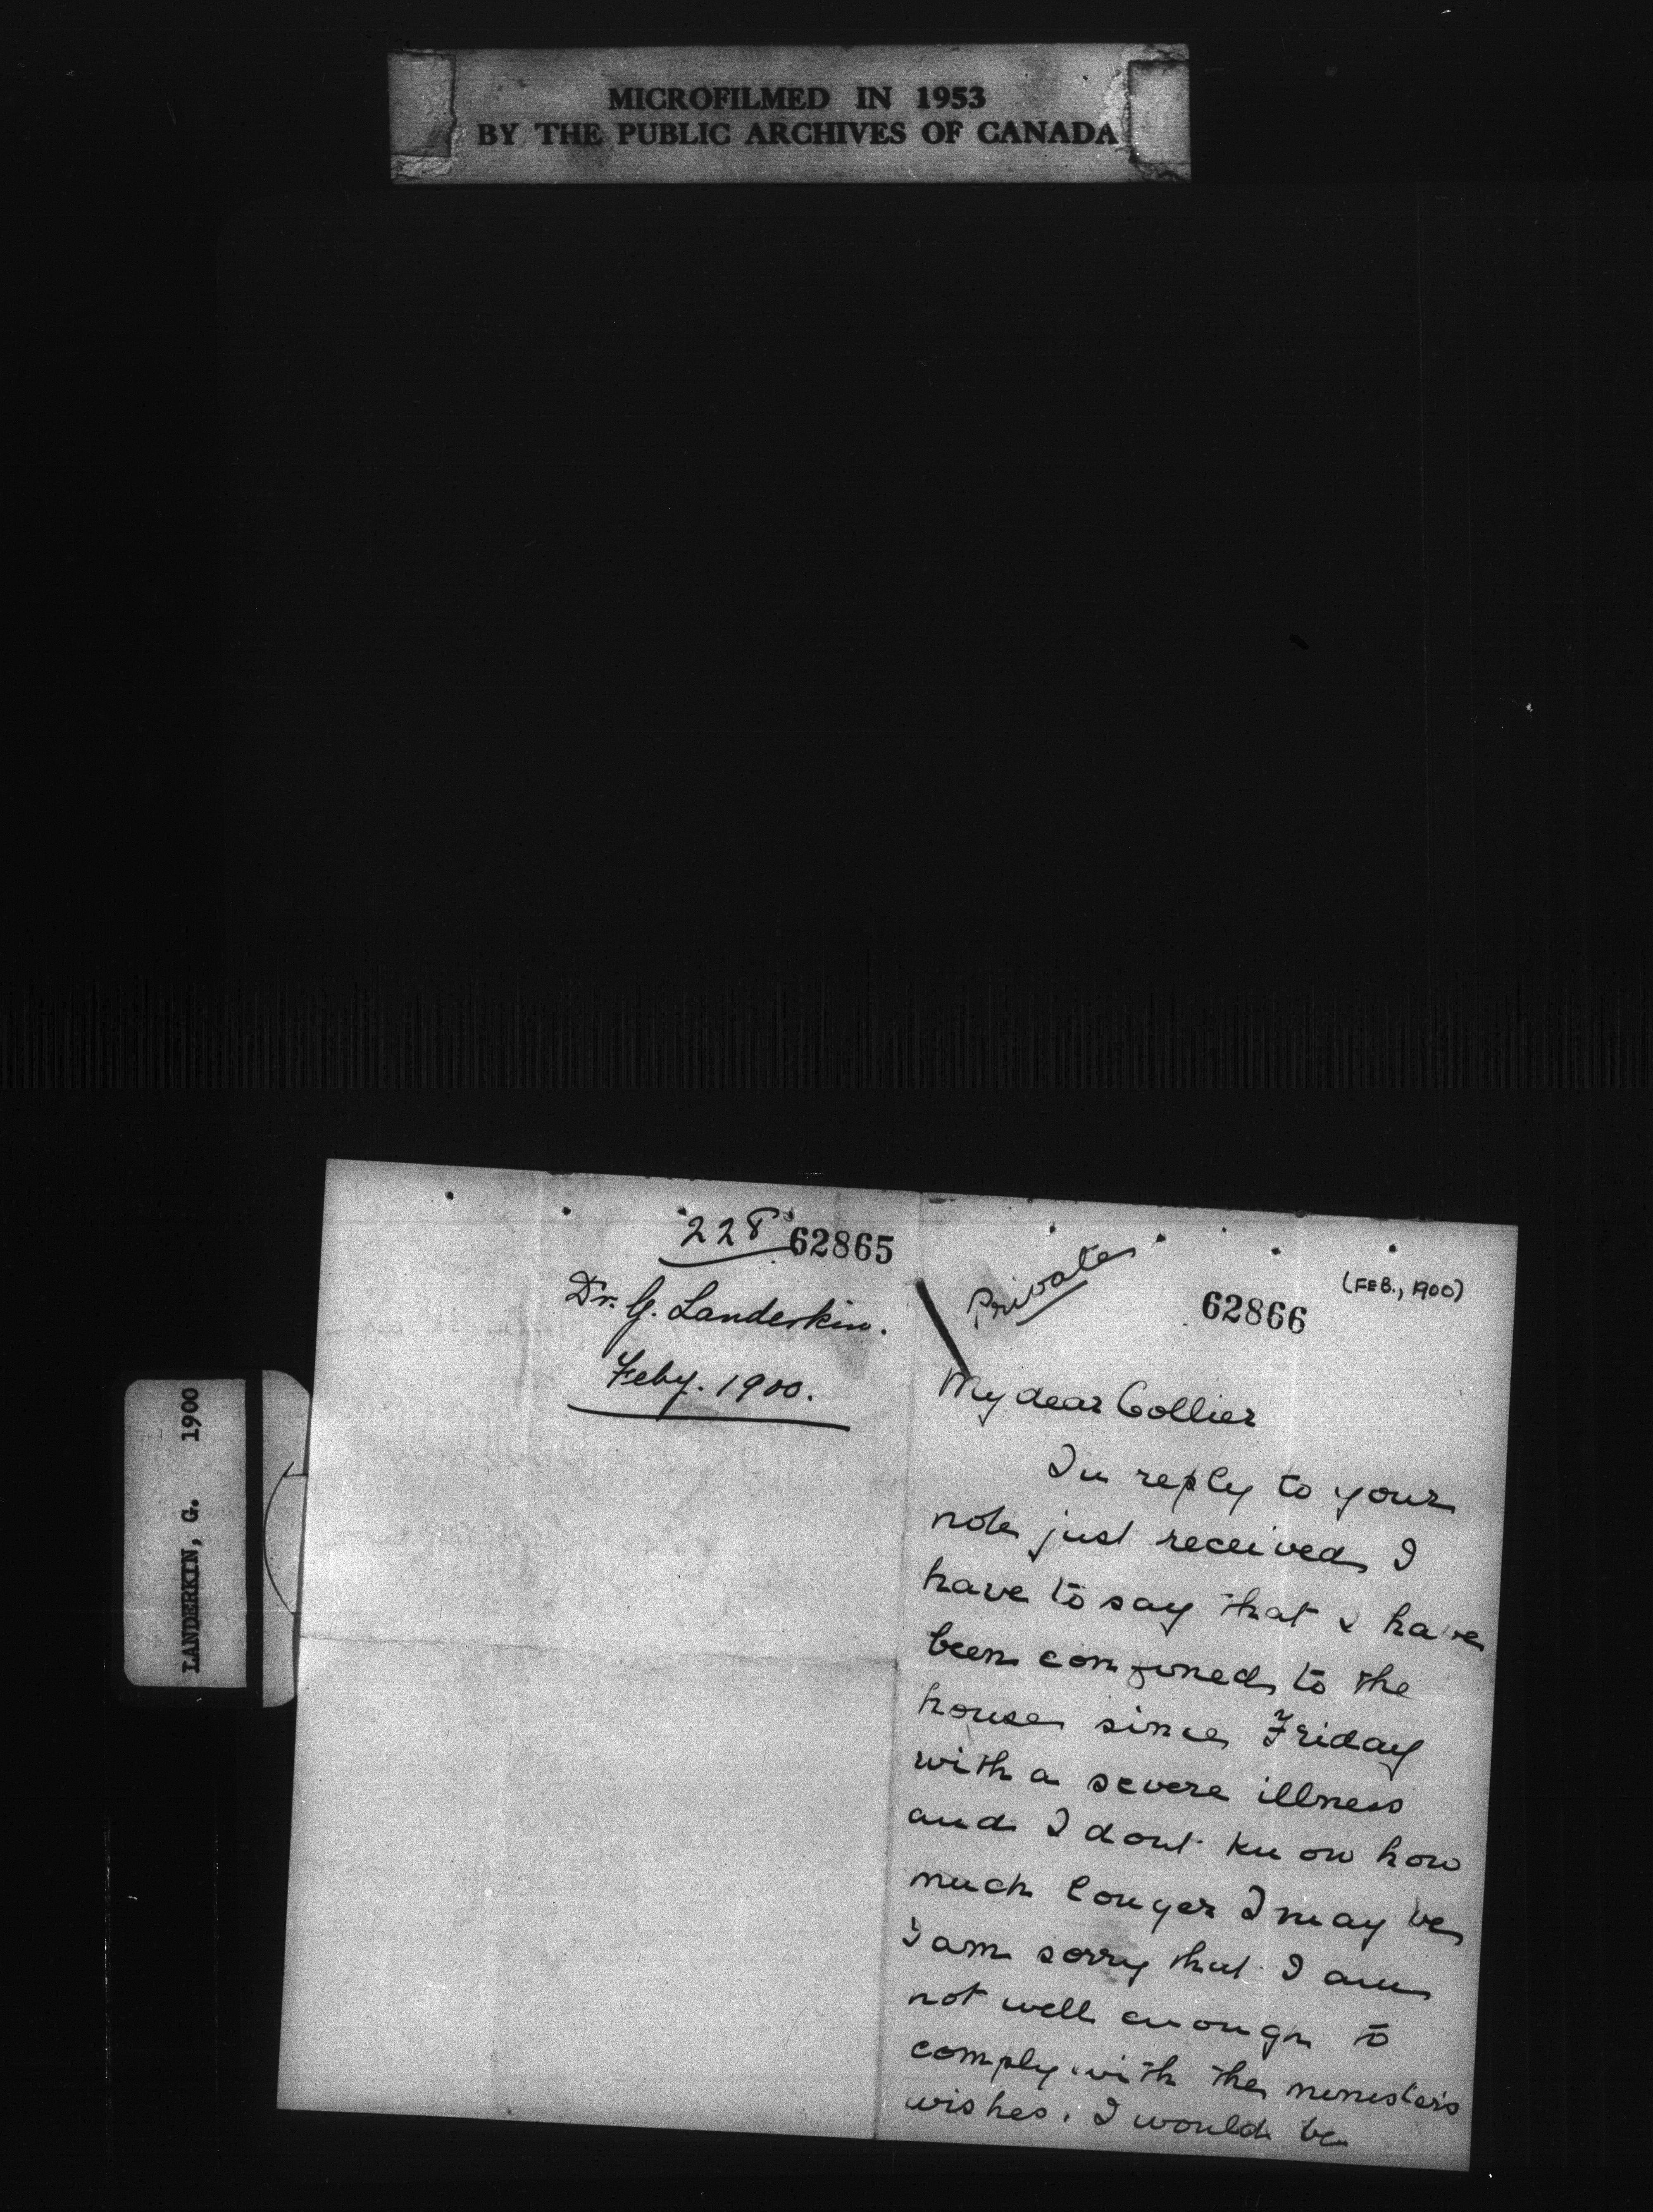 MICROFILMED IN 1953
BY THE PUBLIC ARCHIVES OF CANADA
LANDERKIN, G. 1900
228
62865
Dr. G. Landerkin.
Feby. 1900.
Private
(FEB., 1900)
62866
My dear Collier
In reply to your
note just received I
have to say that I have
been confined to the
house since Friday
with a severe illness
and I dont know how
much longer I may be
I am sorry that I am
not well enough to
comply with the ministers
wishes. I would be